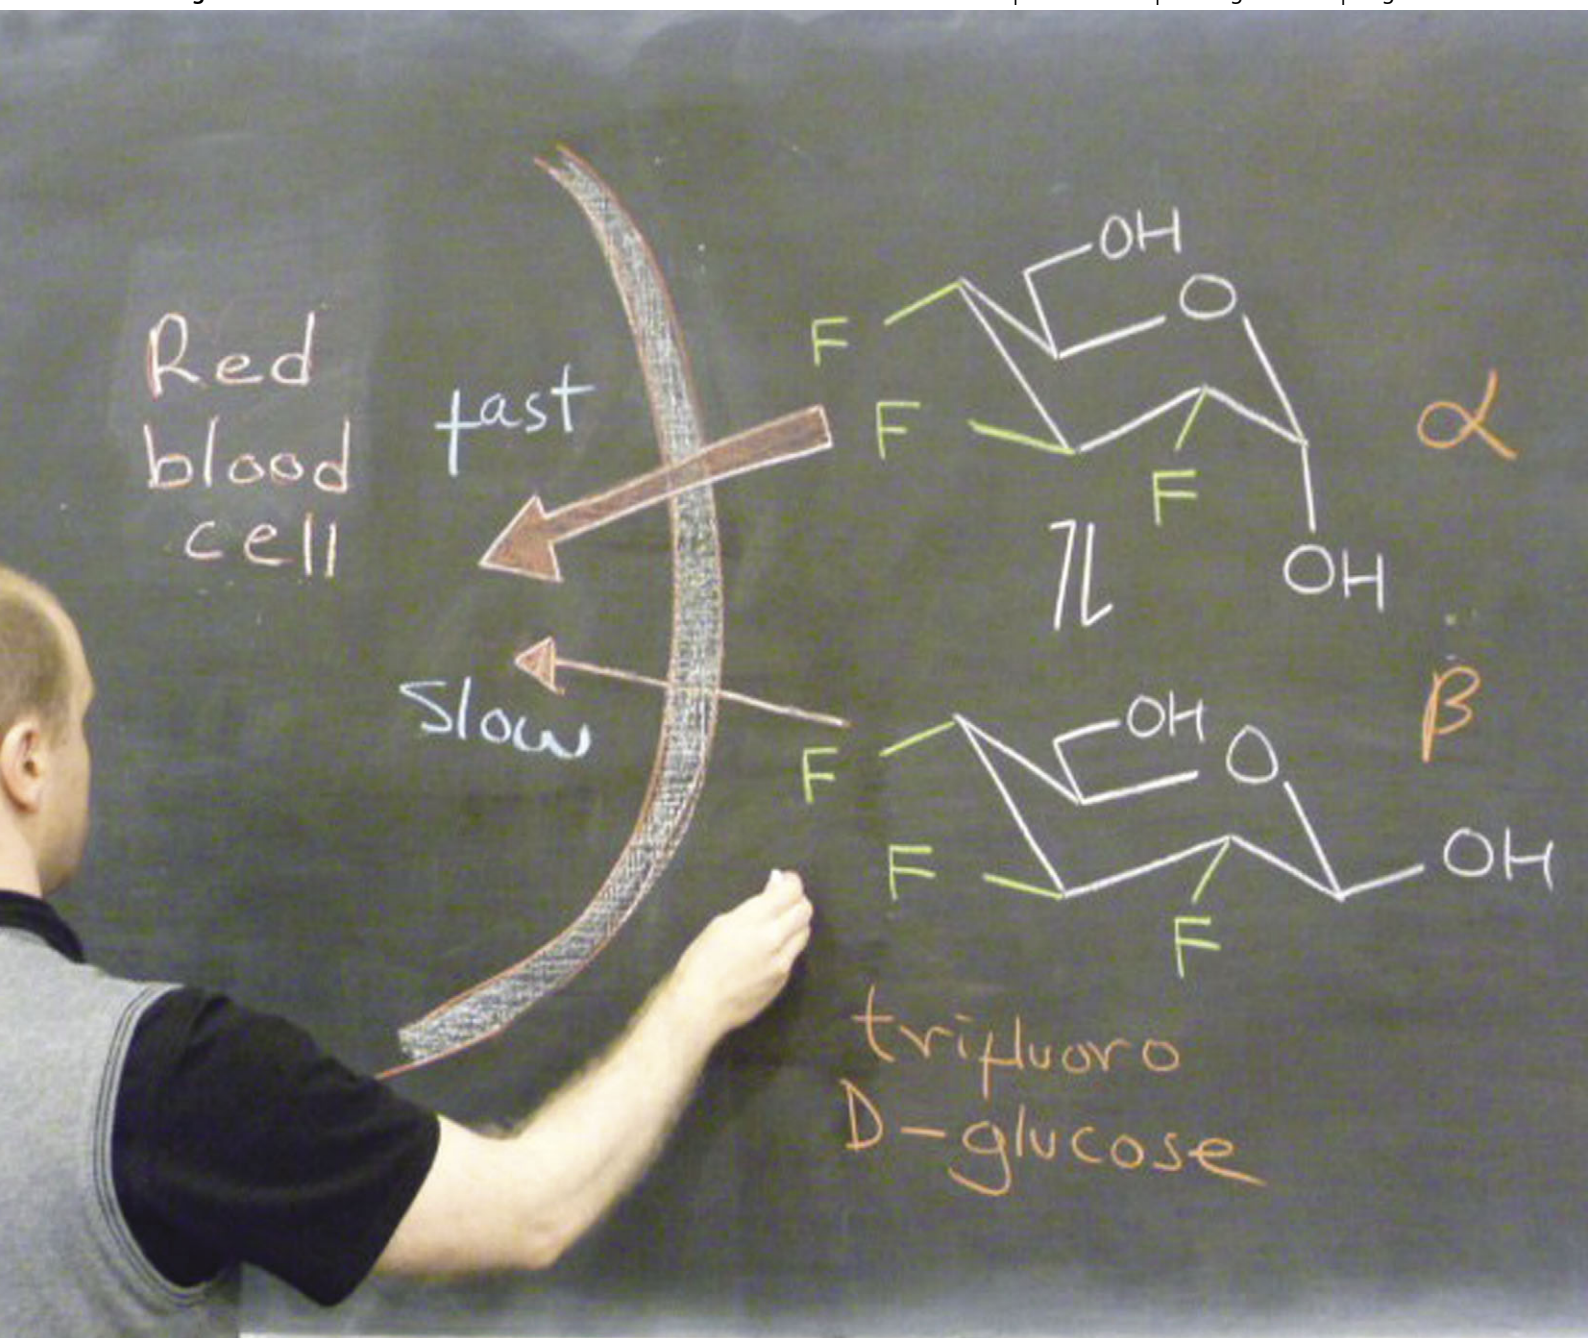 Red
blood
cell
fast
slow
OH
O
F
F
F
OH
α
OH
O
F
F
F
OH
β
trifluoro
D-glucose